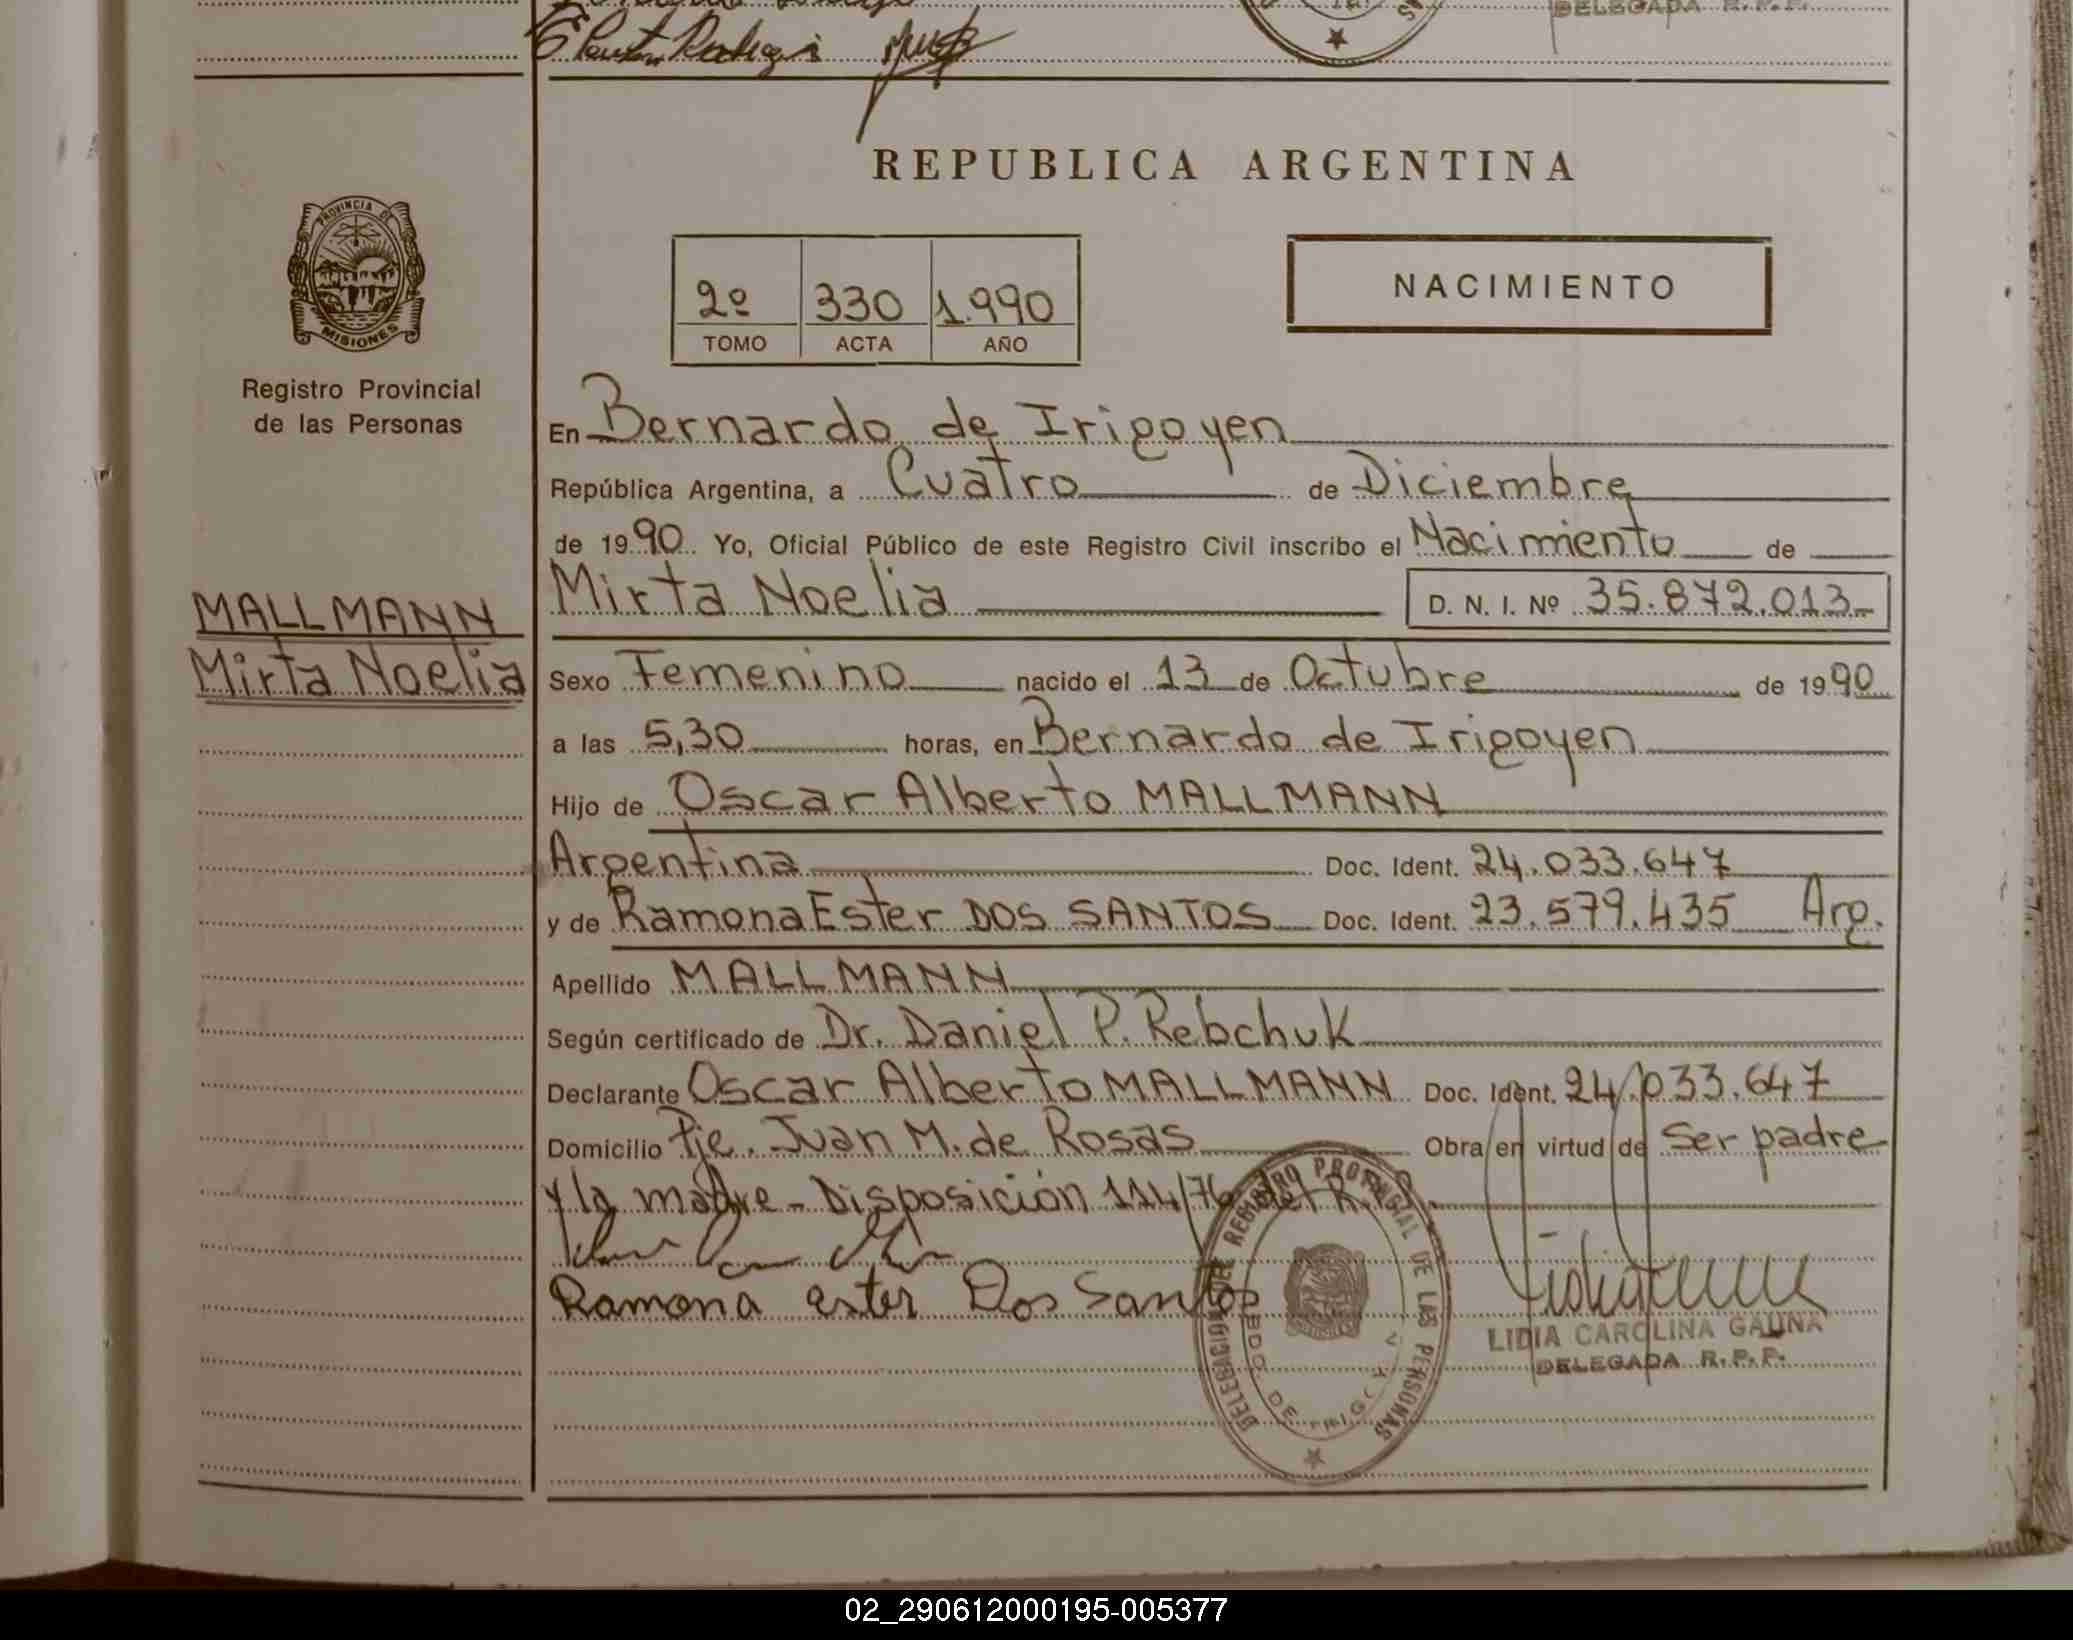 DELEGADA R.P.P.
REPUBLICA ARGENTINA
PROVINCIA DE
MISIONES
Registro Provincial
de las Personas
2º 330 1.990
TOMO ACTA AÑO
NACIMIENTO
En Bernardo de Irigoyen
República Argentina, a Cuatro de Diciembre
de 1990 Yo, Oficial Público de este Registro Civil inscribo el Nacimiento de
MALLMANN
Mirta Noelia
Mirta Noelia D. N. I. Nº 35.872.013
Sexo Femenino nacido el 13 de Octubre de 1990
a las 5,30 horas, en Bernardo de Irigoyen
Hijo de Oscar Alberto MALLMANN
Argentina Doc. Ident. 24.033.647
y de Ramona Ester DOS SANTOS Doc. Ident. 23.579.435 Arg.
Apellido MALLMANN
Según certificado de Dr. Daniel P. Rebchuk
Declarante Oscar Alberto MALLMANN Doc. Ident. 24.033.647
Domicilio Pje. Juan M. de Rosas Obra en virtud de Ser padre
y la madre - Disposición 114/76 del R.
Ramona ester Dos Santos
DELEGACION DEL REGISTRO PROVINCIAL DE LAS PERSONAS
LIDIA CAROLINA GAUNA
DELEGADA R.P.P.
02_290612000195-005377